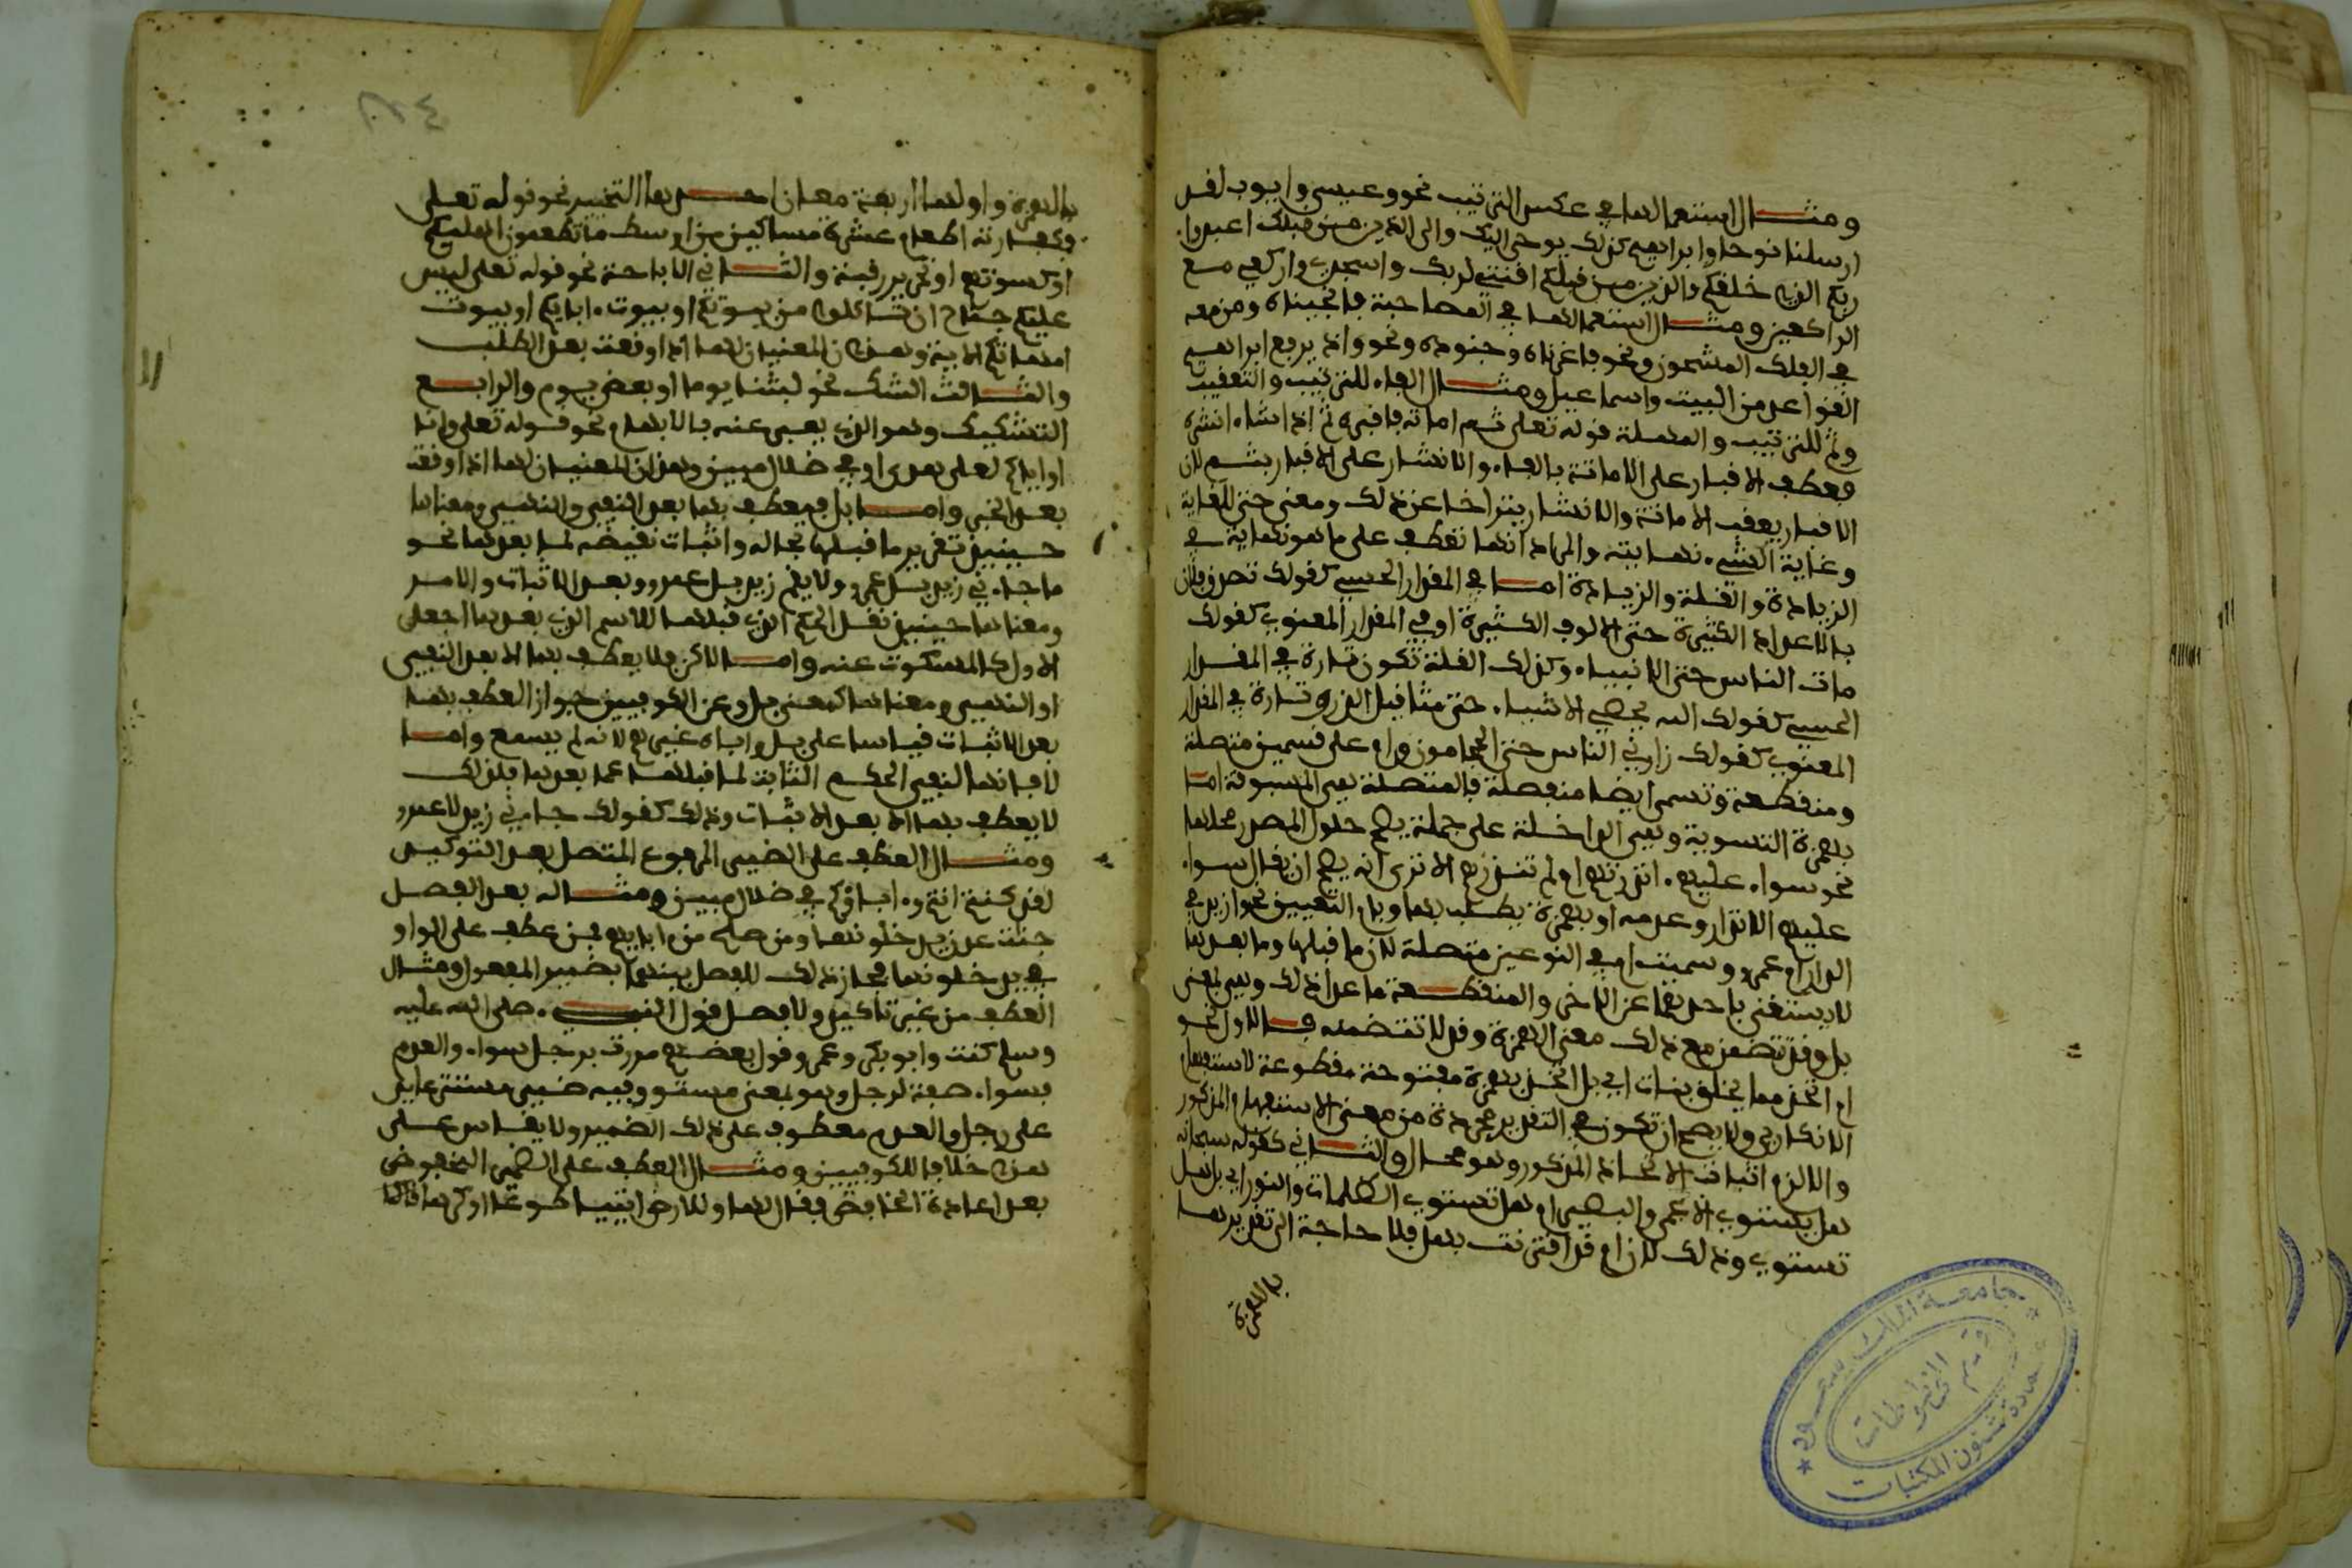 ومثال استعمالها في عكس الترتيب نحو وعيسى وايوب لقد
ارسلنا نوحا وابراهيم كذلك يوحي اليك والى الذين من قبلك اعبدوا
ربكم الذي خلقكم والذين من قبلكم اقنتي لربك واسجدي واركعي مع
الراكعين ومثال استعمالها في المصاحبة فانجيناه ومن معه
في الفلك المشحون ونحو فاغرقناه وجنوده ونحو واذ يرفع ابراهيم
القواعد من البيت واسماعيل ومثال الفاء للترتيب والتعقيب
وثم للترتيب والمهملة قوله تعلى ثم اماته فاقبره ثم اذا شاء انشره
فعطف الاقبار على الاماتة بالفاء والانشار على الاقبار بثم لان
الاقبار يعقب الاماتة والانشار يتراخا عن ذلك ومعنى حتى الغاية
وغاية الشيء نهايته والمراد انها تعطف على ما هو نهاية في
الزيادة والقلة والزيادة اما في المقدار الحسي كقولك تصدق فلان
بالاعداد الكثيرة حتى الالوف الكثيرة او في المقدار المعنوي كقولك
مات الناس حتى الانبياء وكذلك القلة تكون تارة في المقدار
الحسي كقولك الله يحصي الاشياء حتى مثاقيل الذر وتارة في المقدار
المعنوي كقولك زارني الناس حتى الحجامون وام على قسمين متصلة
ومنقطعة وتسمى ايضا منفصلة فالمتصلة هي المسبوقة اما
بهمزة التسوية وهي الداخلة على جملة يصح حلول المصدر محلها
نحو سواء عليهم ءانذرتهم ام لم تنذرهم الا ترى انه يصح ان يقال سواء
عليهم الانذار وعدمه او بهمزة يطلب بها وبام التعيين نحو ازيد في
الدار ام عمرو وسميت ام في النوعين متصلة لان ما قبلها وما بعدها
لا يستغنى باحدهما عن الاخر والمنقطعة ما عدا ذلك وهي بمعنى
بل وقد تضمن مع ذلك معنى الهمزة وقد لا تتضمنه فالاول نحو
ام اتخذ مما يخلق بنات اي بل اتخذ بهمزة مفتوحة مقطوعة للاستفهام
الانكاري ولا يصح ان تكون في التقدير مجردة من معنى الاستفهام المذكور
والا لزم اثبات الاتخاذ المذكور وهو محال والثاني كقوله سبحانه
هل يستوي الاعمى والبصير ام هل تستوي الظلمات والنور اي بل هل
تستوي وذلك لان ام قد اقترنت بهل فلا حاجة الى تقديرها
بالهمزة
بالهمزة واو لها اربعة معان احدها التخيير نحو قوله تعلى
فكفارته اطعام عشرة مساكين من اوسط ما تطعمون اهليكم
او كسوتهم او تحرير رقبة والثاني الاباحة نحو قوله تعلى ليس
عليكم جناح ان تاكلوا من بيوتكم او بيوت ءابايكم او بيوت
امهاتكم الاية وهذان المعنيان لها اذا وقعت بعد الطلب
والثالث الشك نحو لبثنا يوما او بعض يوم والرابع
التشكيك وهو الذي يعبر عنه بالابهام نحو قوله تعلى وانا
او اياكم لعلى هدى او في ضلال مبين وهذان المعنيان لها اذا وقعت
بعد الخبر واما بل فيعطف بها بعد النفي والنهي ومعناها
حينيذ تقرير ما قبلها بحاله واثبات نقيضه لما بعدها نحو
ما جاءني زيد بل عمرو ولا يقم زيد بل عمرو وبعد الاثبات والامر
ومعناها حينيذ نقل الحكم الذي قبلها للاسم الذي بعدها اجعل
الاول كالمسكوت عنه واما لاكن فلا يعطف بها الا بعد النفي
او النهي ومعناها كمعنى بل وعن الكوفيين جواز العطف بها
بعد الاثبات قياسا على بل واباه غيرهم لانه لم يسمع واما
لا فانها لنفي الحكم الثابت لما قبلها عما بعدها فلذلك
لا يعطف بها الا بعد الاثبات وذلك كقولك جاءني زيد لا عمرو
ومثال العطف على الضمير المرفوع المتصل بعد التوكيد
لقد كنتم انتم وءاباؤكم في ضلال مبين ومثاله بعد الفصل
جنات عدن يدخلونها ومن صلح من ءابايهم فمن عطف على الواو
في يدخلونها فجاز ذلك للفصل بينهما بضمير المفعول ومثال
العطف من غير تاكيد ولا فصل قول النبي صلى الله عليه
وسلم كنت وابو بكر وعمر وقول بعضهم مررت برجل سواء والعدم
فسواء صفة لرجل وهو بمعنى مستو وفيه ضمير مستتر عايد
على رجل والعدم معطوف على ذلك الضمير ولا يقاس على
هذا خلافا للكوفيين ومثال العطف على الضمير المخفوض
بعد اعادة الخافض فقال لها وللارض ايتيا طوعا او كرها قالتا
جامعة الملك سعود
قسم المخطوطات
عمادة شئون المكتبات